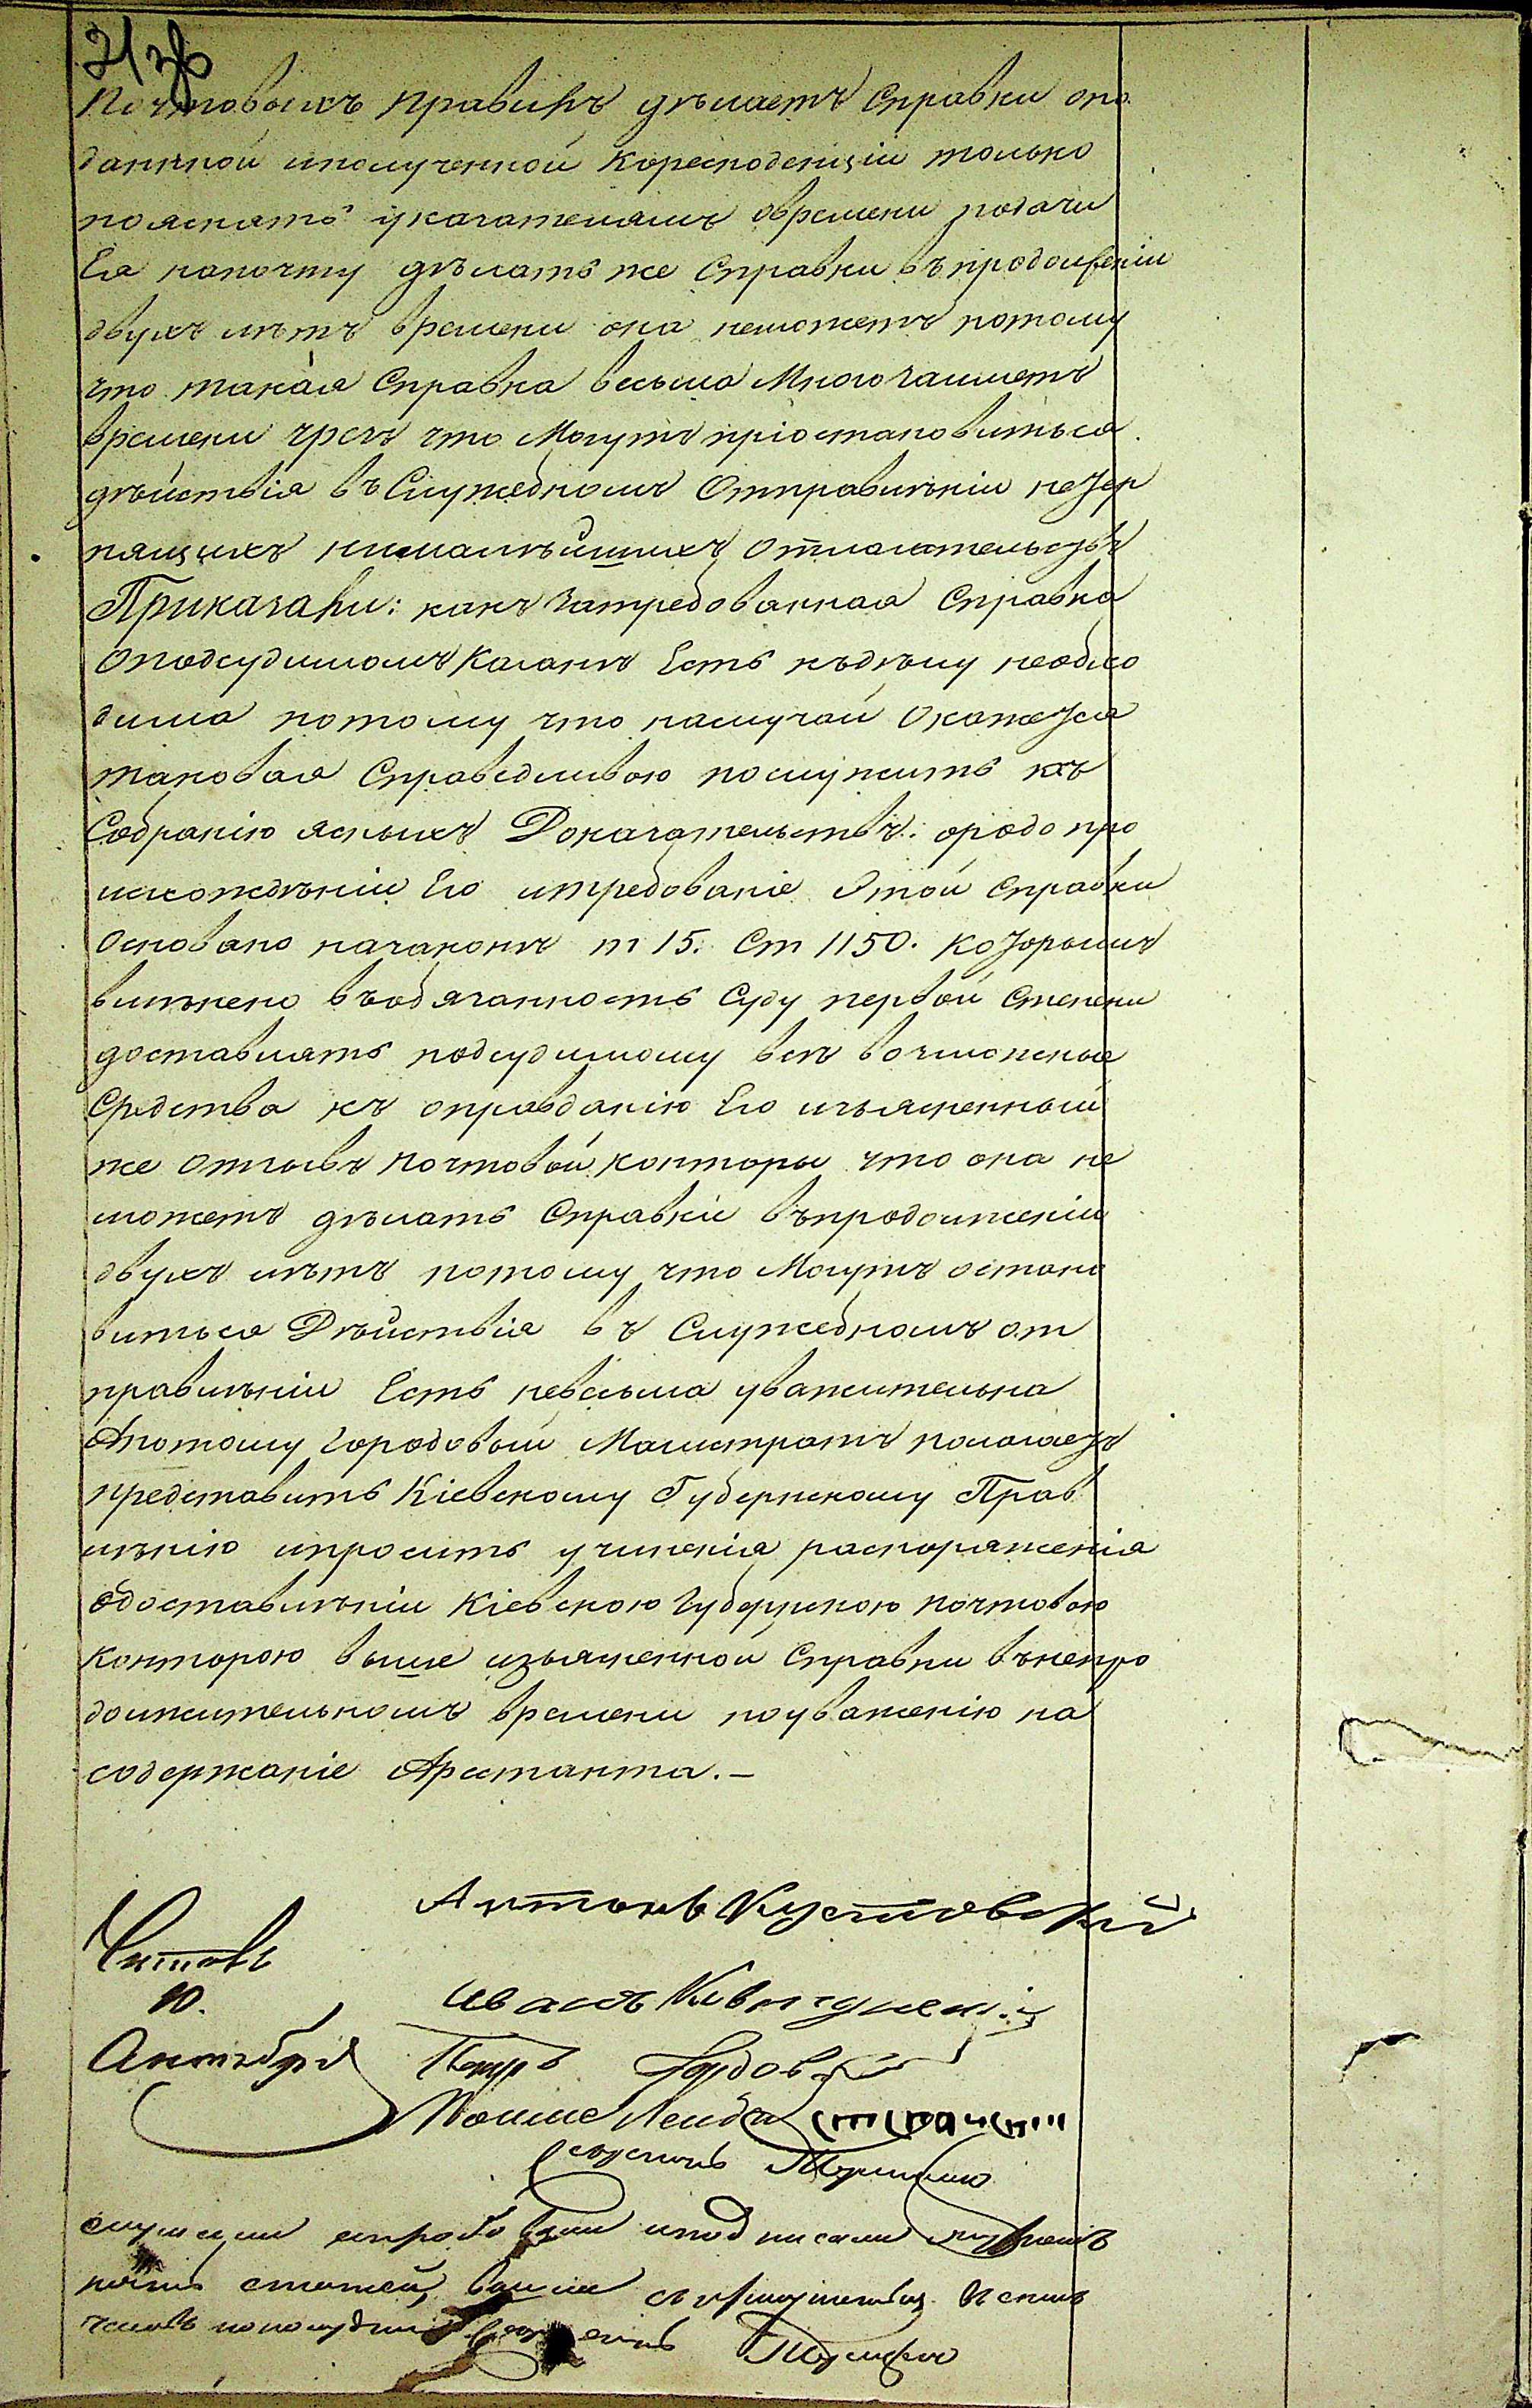 Почтовыхъ правилъ дѣлаетъ справки опо
данной иполученной Коресподенціи только
пояснымъ указателямъ овремени подачи
Ея напочту дѣлать же Справки въпродолженіи
двухъ лѣтъ времени она неможетъ потому
что такая Справка весьма Много займетъ
времени чрезъ что Могутъ пріостановиться
дѣйствія въ Служебномъ Отправленіи не тер
пящихъ нималѣйшихъ отлагательствъ
Приказали: какъ затребованная Справка
Оподсудимомъ Каганѣ Есть къдѣлу необхо
дима потому что наслучай Окажется
таковая Справедливою послужитъ къ
Собранію ясныхъ Доказательствъ: ородо про
исхожденіи Его итребованіе Этой Справки
Основано назаконѣ т 15. Ст 1150. Которымъ
вмѣнено въобязанность Суду первой степени
доставлять подсудимому всѣ возможные
Средства къ оправданію Его изъясненный
же отзывъ почтовой конторы что она не
можетъ дѣлать Справки въпродолженіи
двухъ лѣтъ потому что Могутъ остано
виться Дѣйствія въ Служебномъ от
правленіи Есть невесьма уважительна
Апотому Городовый Магистратъ полагаетъ
представить Кіевскому Губернскому Прав
лѣнію ипросить учиненія распоряженія
Одоставлѣніи Кіевскою Губернскою почтовою
Конторою выше изъясненной Справки въ непро
должительномъ времени поуваженію на
содержаніе Арестанта.-
Антонъ Кустовскій
Читалъ
10.
Иванъ
Октября Петръ
Мошие Лейба
слушали апробовали иподписали
пять статей, выше
часовъ пополудни